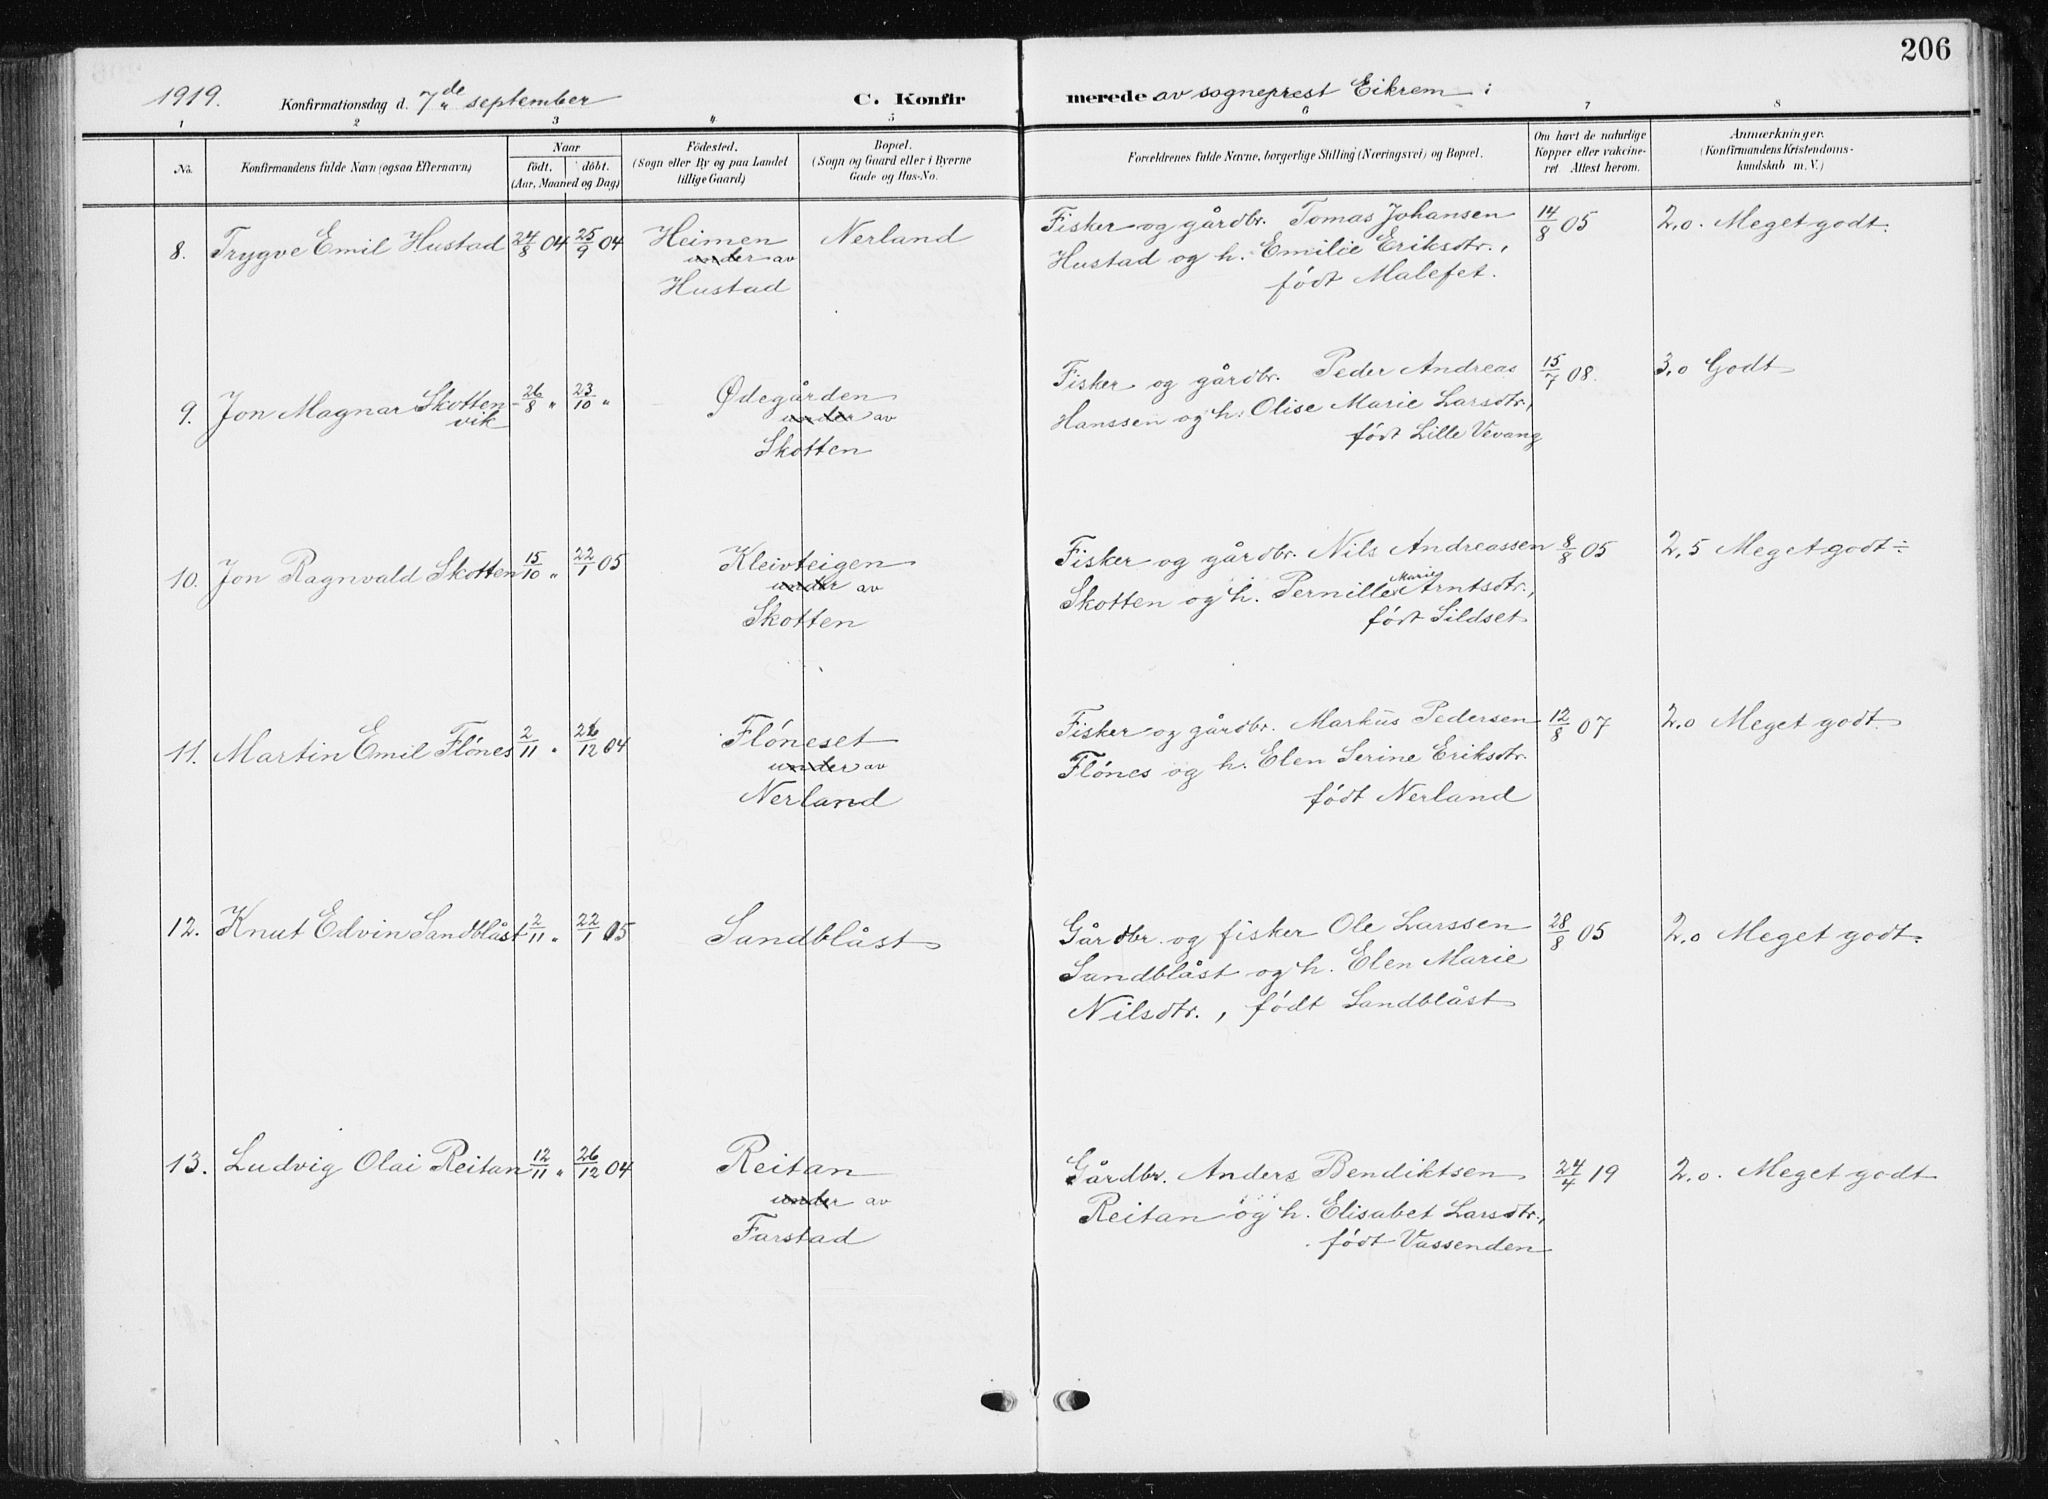 206
1919. Konfirmationsdag d. 7de september C. Konfir merede av sogneprest Eikrem i
1 2 3 4 5 6 7 8
No. Konfirmandens fulde Navn (ogsaa Efternavn) Naar født, døbt. (Aar, Maaned og Dag) Födested. (Sogn eller By og paa Landet tillige Gaard) Bopæl. (Sogn og Gaard eller i Byerne Gade og Hus-No. Forældrenes fulde Navne, borgerlige Stilling (Næringsvei) og Bopæl. Om havt de naturlige Kopper eller vakcineret Attest herom. Anmærkninger. (Konfirmandens Kristendomskundskab m. V.)
8. Trygve Emil Hustad 24/8 04 25/9 04 Heimen Nerland Fisker og gårdbr. Tomas Johansen 14/8 05 2,0. Meget godt.
under av Hustad og h. Emilie Eriksdtr.,
Hustad født Malefet.
9. Jon Magnar Skotten 26/8 " 23/10 " Ødegården Fisker og gårdbr. Peder Andreas 15/7 08. 3,0 Godt
vik under av Hanssen og h. Olise Marie Larsdtr.,
Skotten født Lille Vevang
10. Jon Ragnvald Skotten 15/10 " 22/1 05 Kleivteigen Fisker og gårdbr. Nils Andreassen 8/8 05 2,5 Meget godt ÷
under av Skotten og h. Pernille Marie Arntsdtr.,
Skotten født Sildset
11. Martin Emil Flónes 2/11 " 26/12 04 Flóneset Fisker og gårdbr. Markus Pedersen 12/8 07 2,0 Meget godt
under av Flónes og h. Elen Serine Eriksdtr.
Nerland født Nerland
12. Knut Edvin Sandblåst 2/11 " 22/1 05 Sandblåst Gårdbr. og fisker Ole Larssen 28/8 05 2,0 Meget godt.
Sandblåst og h. Elen Marie
Nilsdtr., født Sandblåst
13. Ludvig Olai Reitan 12/11 " 26/12 04 Reitan Gårdbr. Anders Bendiktsen 24/4 19 2,0. Meget godt
under av Reitan og h. Elisabet Larsdtr.,
Farstad født Vassenden